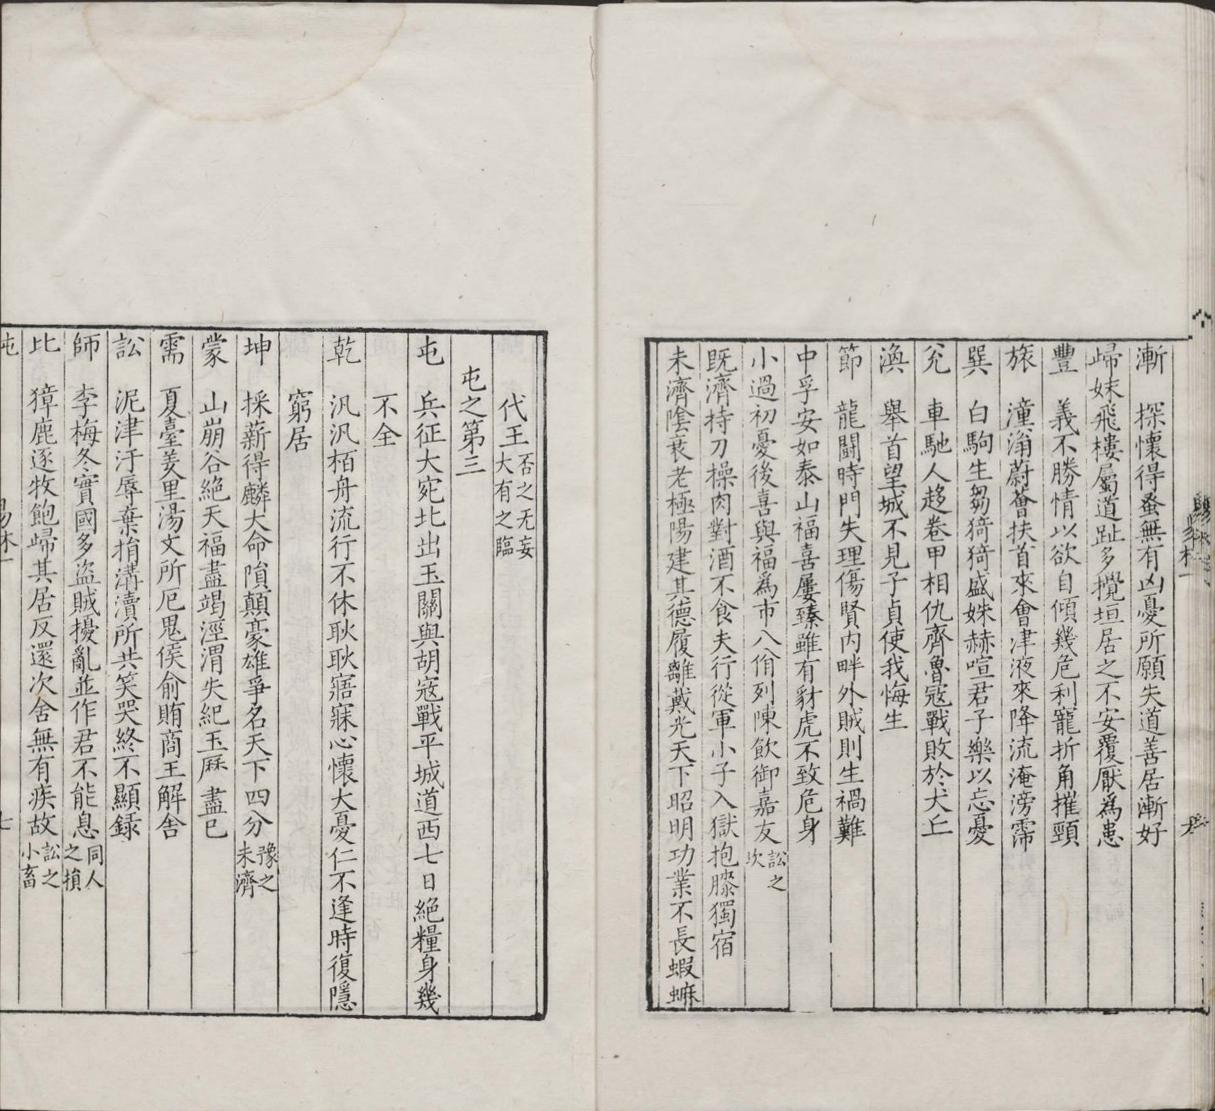 漸　探懷得蚤無有凶憂所願失道善居漸好
歸妹飛樓屬道趾多攪垣居之不安覆厭為患
豐　義不勝情以欲自傾幾危利寵折角摧頸
旅　潼滃蔚薈扶首來會津液來降流淹滂霈
巽　白駒生芻猗猗盛姝赫喧君子樂以忘憂
兌　車馳人趍卷甲相仇齊魯寇戰敗於犬丘
渙　舉首望城不見子貞使我悔生
節　龍鬬時門失理傷賢內畔外賊則生禍難
中孚安如泰山福喜屢臻雖有豺虎不致危身
小過初憂後喜與福為市八佾列陳飲御嘉友訟之坎
既濟持刀操肉對酒不食夫行從軍小子入獄抱膝獨宿
未濟陰衰老極陽建其德履離戴光天下昭明功業不長蝦蟆
代王否之无妄大有之臨
屯之第三
屯　兵征大宛北出玉關與胡寇戰平城道西七日絕糧身幾
不全
乾　汎汎栢舟流行不休耿耿寤寐心懷大憂仁不逢時復隱
窮居
坤　採薪得麟大命隕顛豪雄爭名天下四分豫之未濟
蒙　山崩谷絕天福盡竭涇渭失紀玉厤盡已
需　夏臺羑里湯文所厄鬼侯俞賄商王解舍
訟　泥津汙辱棄捐溝瀆所共笑哭終不顯錄
師　李梅冬實國多盜賊擾亂並作君不能息同人之損
比　獐鹿逐牧飽歸其居反還次舍無有疾故訟之小畜